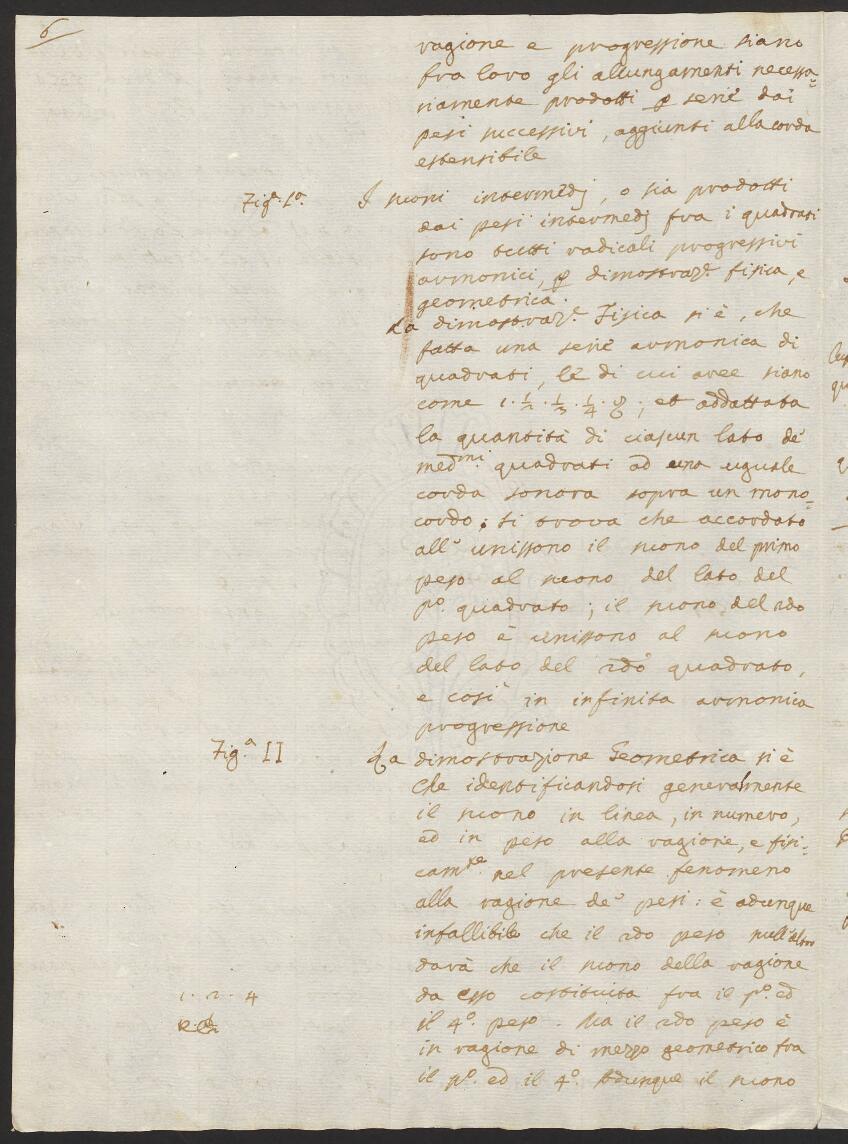 6
ragione e progressione siano
fra loro gli allungamenti necessa=
riamente prodotti p serie dai
pesi successivi, aggiunti alla corda
estensibile
Figa. Ia.
I suoni intermedj, o sia prodotti
dai pesi intermedj fra i quadrati
sono tutti radicali progressivi
armonici, p dimostraze. fisica, e
geometrica.
La dimostraze. Fisica si è, che
fatta una serie armonica di
quadrati, le di cui aree siano
come 1. 1/2. 1/3. 1/4. &; et addattata
la quantità di ciascun lato de'
medmi. quadrati ad una uguale
corda sonora sopra un mono=
cordo; si trova che accordato
all' unissono il suono del primo
peso al suono del lato del
po. quadrato; il suono del 2do
peso è unissono al suono
del lato del 2do quadrato,
e così in infinita armonica
progressione
Figa. II
La dimostrazione Geometrica si è
che identificandosi generalmente
il suono in linea, in numero,
ed in peso alla ragione, e fisi=
camte. nel presente fenomeno
alla ragione de' pesi: è adunque
infallibile che il 2do peso null'altro
darà che il suono della ragione
1. 2. 4
da esso costituita fra il po. ed
il 4o. peso. Ma il 2do peso è
in ragione di mezzo geometrico fra
il po. ed il 4o. Adunque il suono